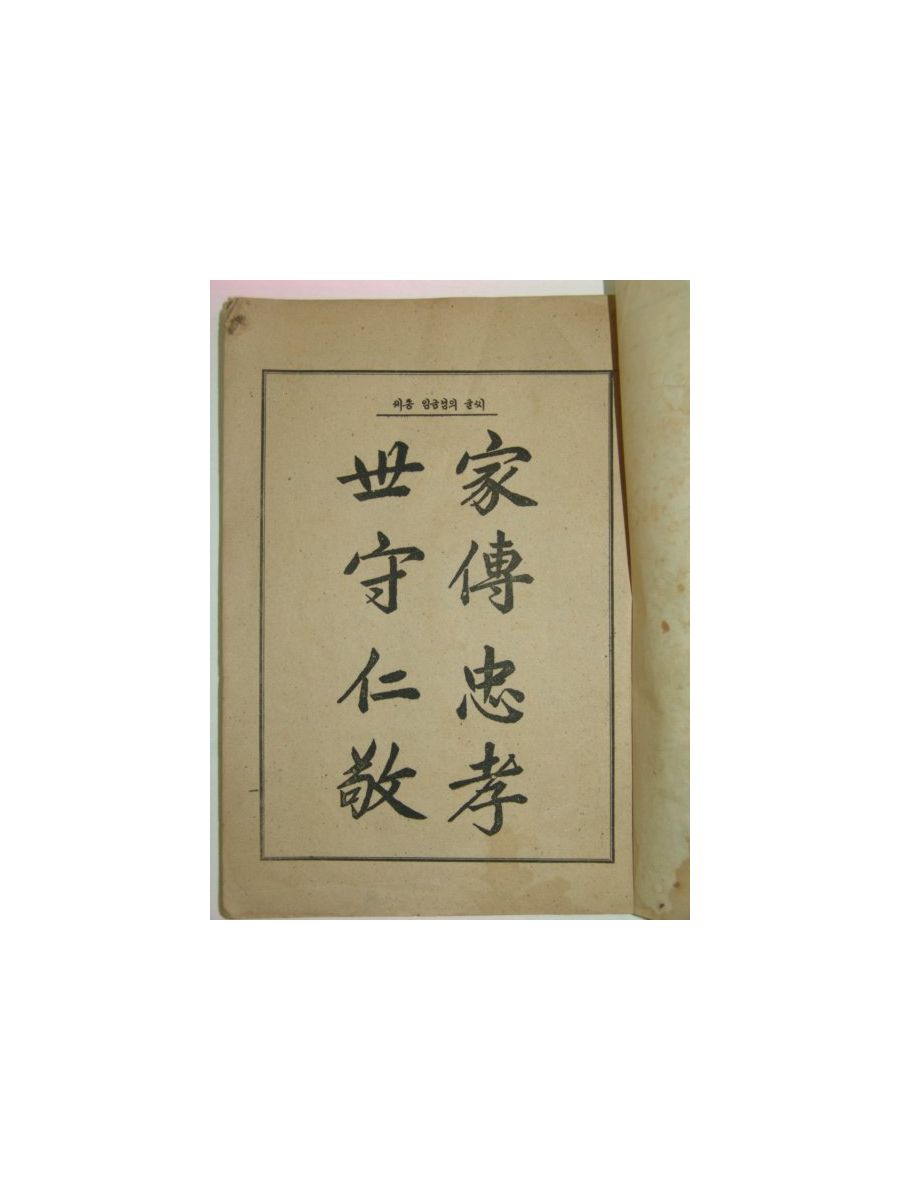 세종 임금님의 글씨
家傳忠孝
世守仁敬